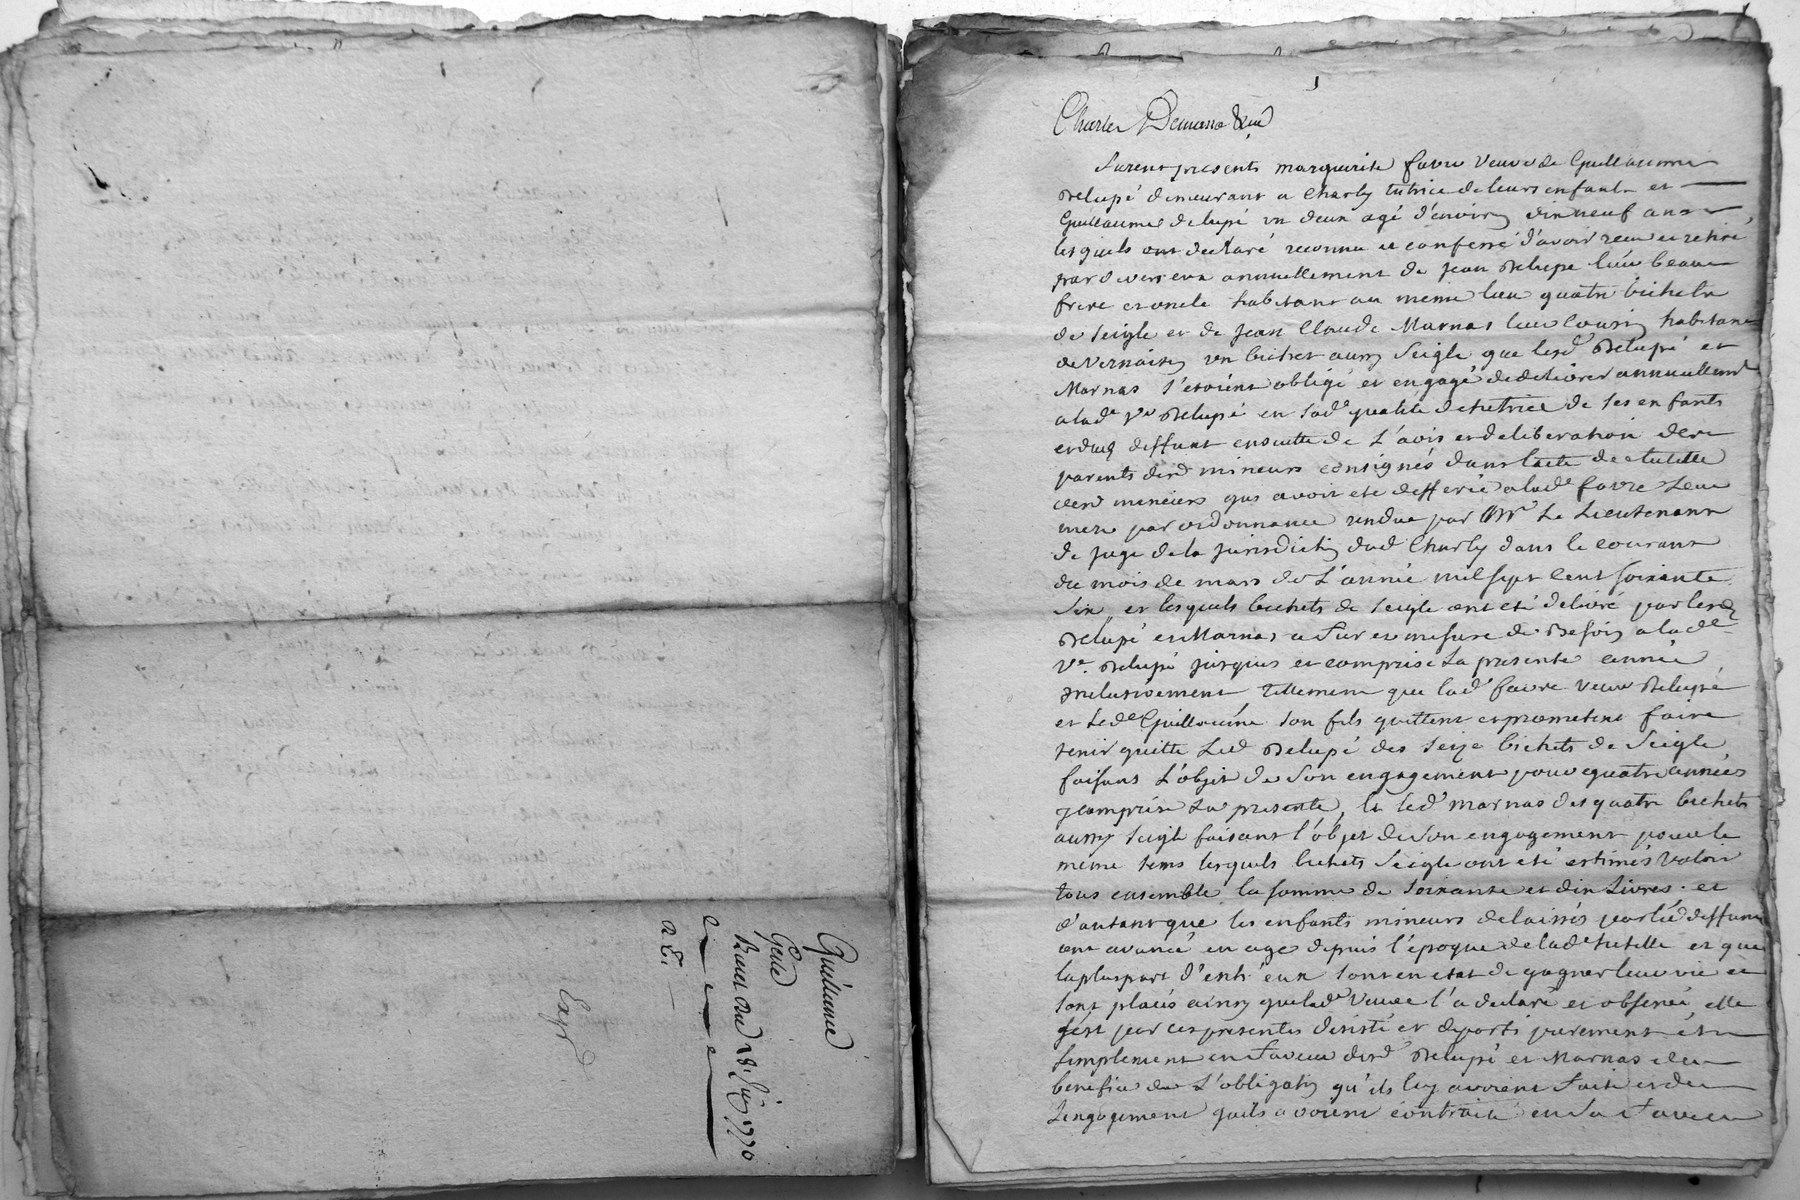 Quittance
Reçu du 18 Juin 1770
Exp
Furent presents marguerite favre veuve de Guillaume
Delupé demeurant a Charly tutrice de leurs enfants et
Guillaume delupé un deux agé d'environ dix neuf ans
lesquels ont declaré reconnu et confessé d'avoir receu et retiré
par devers eux annuellement de jean Delupé leur beau
frere et oncle habitant au meme lieu quatre bichets
de seigle et de jean Claude Marnas leur cousin habitant
de vernaison un bichet aussy seigle que lesd Delupé et
Marnas s'etoient obligé et engagé de delivrer annuellement
a lad.e v.e Delupé en sad.e qualité de tutrice de ses enfants
et dud deffunt ensuitte de l'avis et deliberation des
parents desd mineurs consignés dans l'acte de tutelle
desd mineurs qui avoit eté defferée a lad.e favre leur
mere par ordonnance rendue par M.r Le Lieutenant
de juge de la jurisdiction dud Charly dans le courant
du mois de mars de L'année mil sept cent soixante
six, et lesquels bichets de seigle ont eté delivré par lesd
Delupé et Marnas a fur et mesure de besoin a lad.e
V.e Delupé jusques et comprise La presente année
inclusivement tellement que lad.e favre veuve Delupé
et led.e Guillaume son fils quittent et promettent faire
tenir quitte Led Delupé des seize bichets de seigle
faisant L'objet de son engagement pour quatre années
y comprise La presente, et led.' marnas des quatre bichets
aussy seigle faisant l'objet de son engagement pour le
meme tems lesquels bichets seigle ont eté estimés valoir
tous ensemble la somme de soixante et dix Livres. et
d'autant que les enfants mineurs delaissés par led deffunt
ont avancé en age depuis l'epoque de lad.e tutelle et que
la pluspart d'entr'eux sont en etat de gagner leur vie et
sont placés ainsy que lad.e veuve l'a declaré et observé, elle
s'est par ces presentes desisté et departi purement et
simplement en faveur desd.' Delupé et Marnas du
benefice de L'obligation qu'ils luy avoient faite et de
Lengagement qu'ils avoient contracté en sa faveur